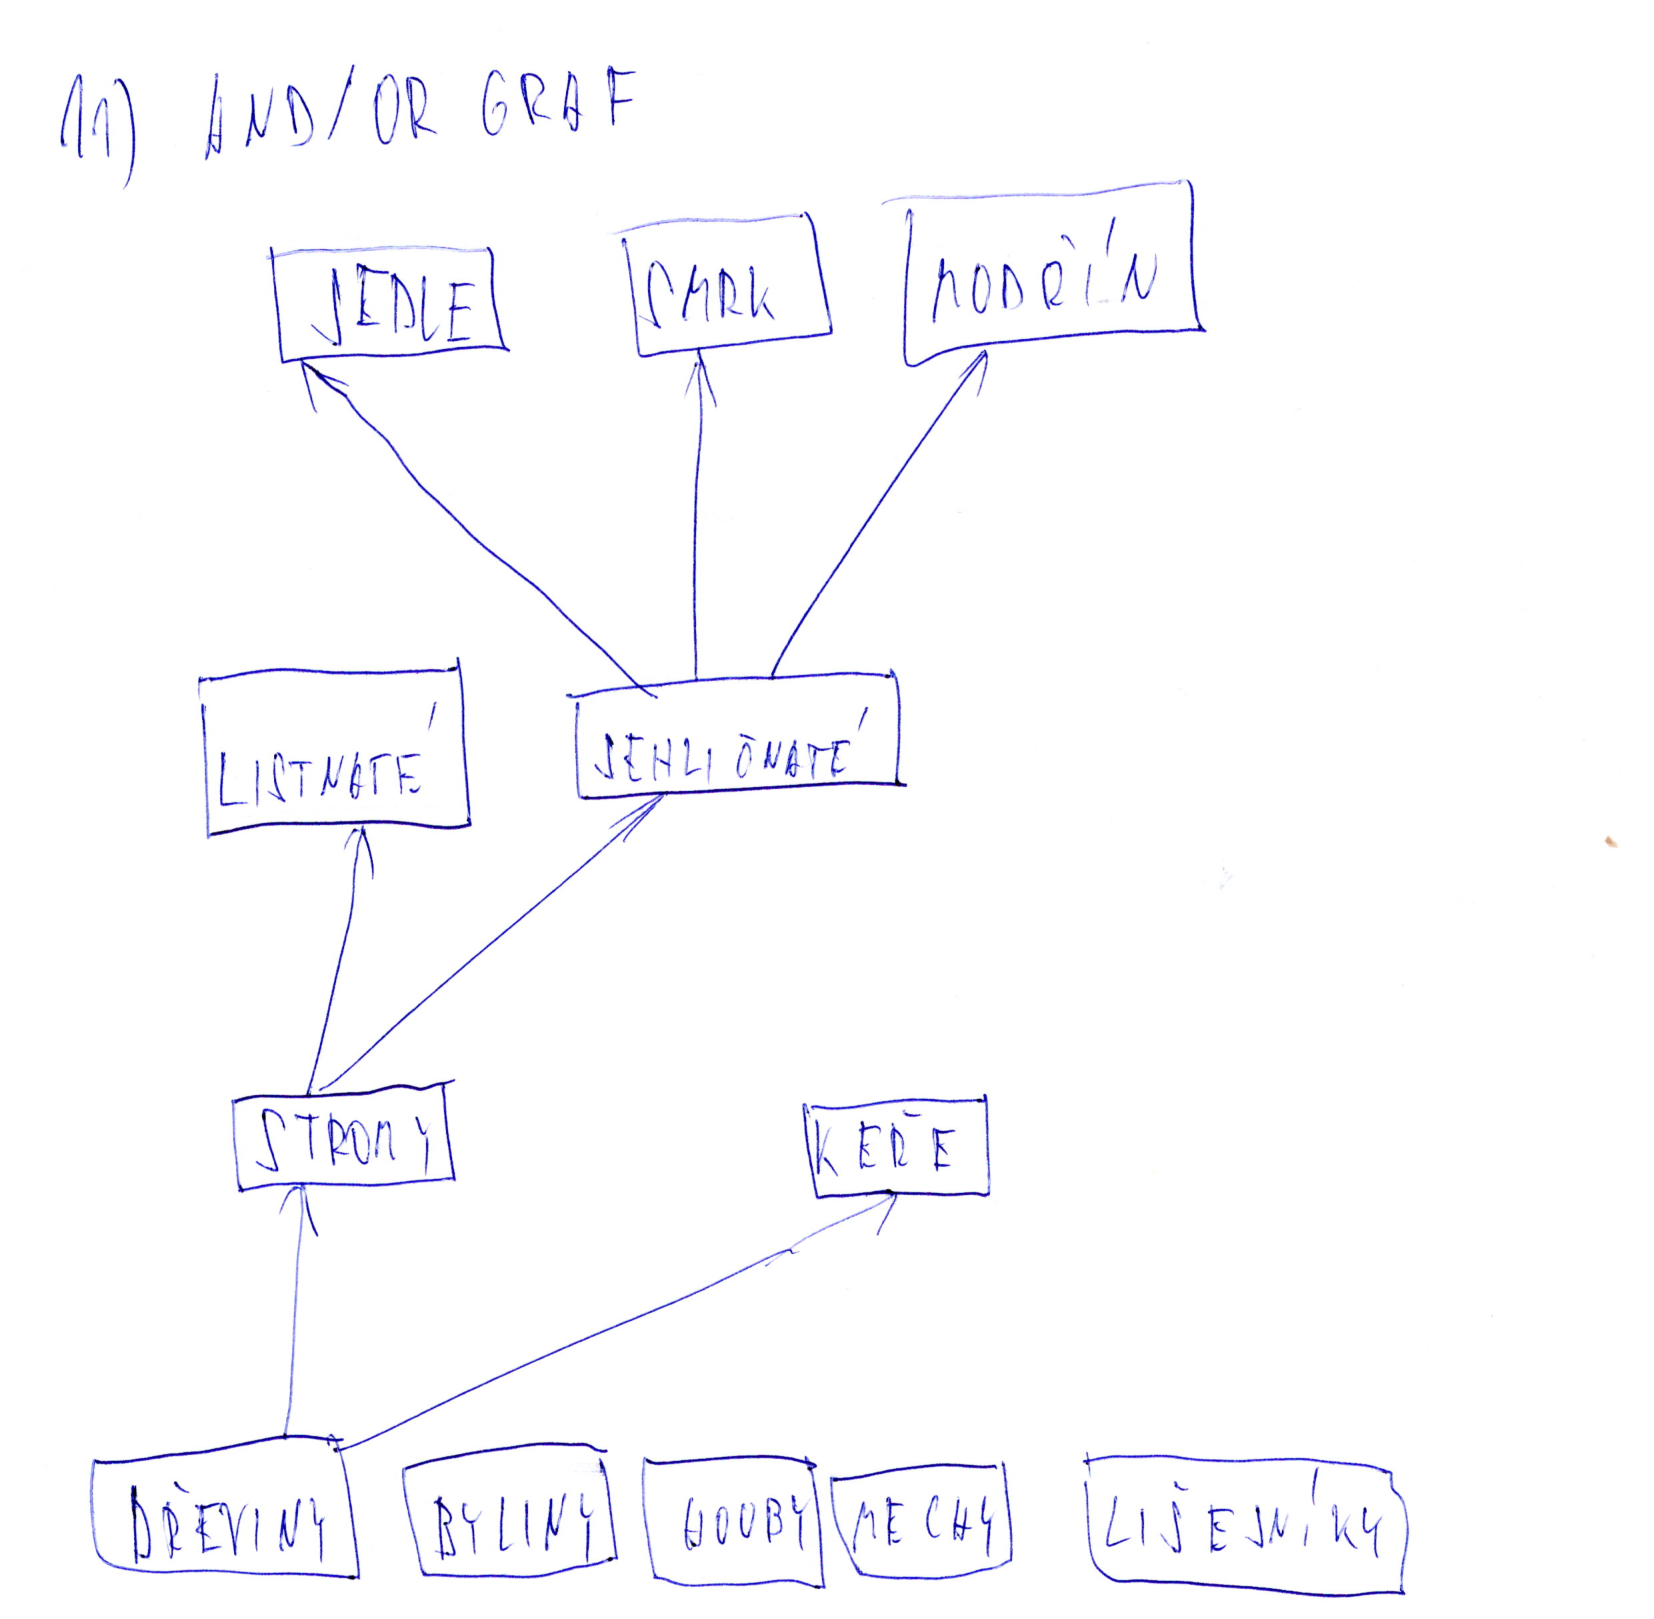 11) AND/OR GRAF
JEDLE SMRK MODŘÍN
LISTNATÉ JEHLIČNATÉ
STROMY KEŘE
DŘEVINY BYLINY HOUBY MECHY LIŠEJNÍKY